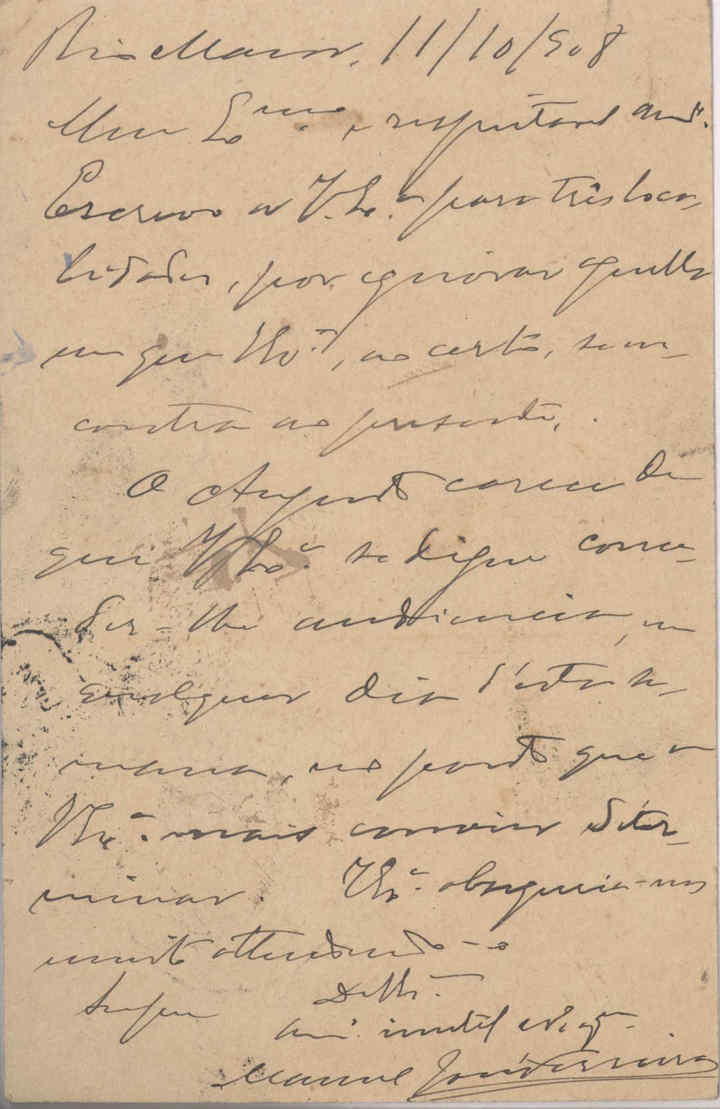 Rio Maior, 11/10/908
Meu Exmo. e respeitavel amº.
Escrevo a V. Exª. para três loca-
lidades, por ignorar aquella
em que V Exª., ao certo, se en-
contra ao presente.
O Augusto carece de
que V Exª. se digne conce-
der-lhe audiencia, em
qualquer dia d'esta se-
mana, no ponto que a
V Exª. mais convier deter-
minar. V Exª. obsequeia-nos
muito attendendo-o
Sempre
De V Exª.
amº. inutil e obgº.
Manuel José Ferreira